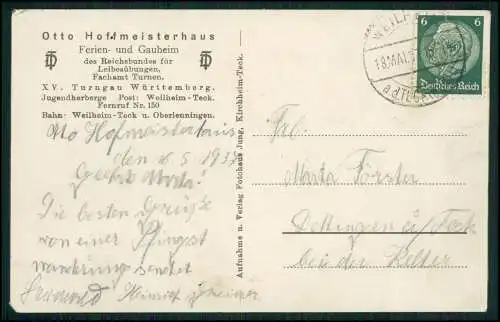 Otto Hoffmeisterhaus
Ferien- und Gauheim
des Reichsbundes für
Leibesübungen,
Fachamt Turnen.
XV. Turngau Württemberg.
Jugendherberge Post: Weilheim-Teck.
Fernruf Nr. 150
Bahn: Weilheim-Teck u. Oberlenningen.
Hofmeisterhaus
den 16.5 1937
Die besten Grüße
von einer Pfingst
wanderung sendet
Heinrich
Aufnahme u. Verlag Fotohaus Jung, Kirchheim-Teck.
WEILHEIM
18.MAI.
a.d.TECK
6 6
Deutsches Reich
Frl.
Marta Förster
Dettingen u/ Teck
bei der Kelter